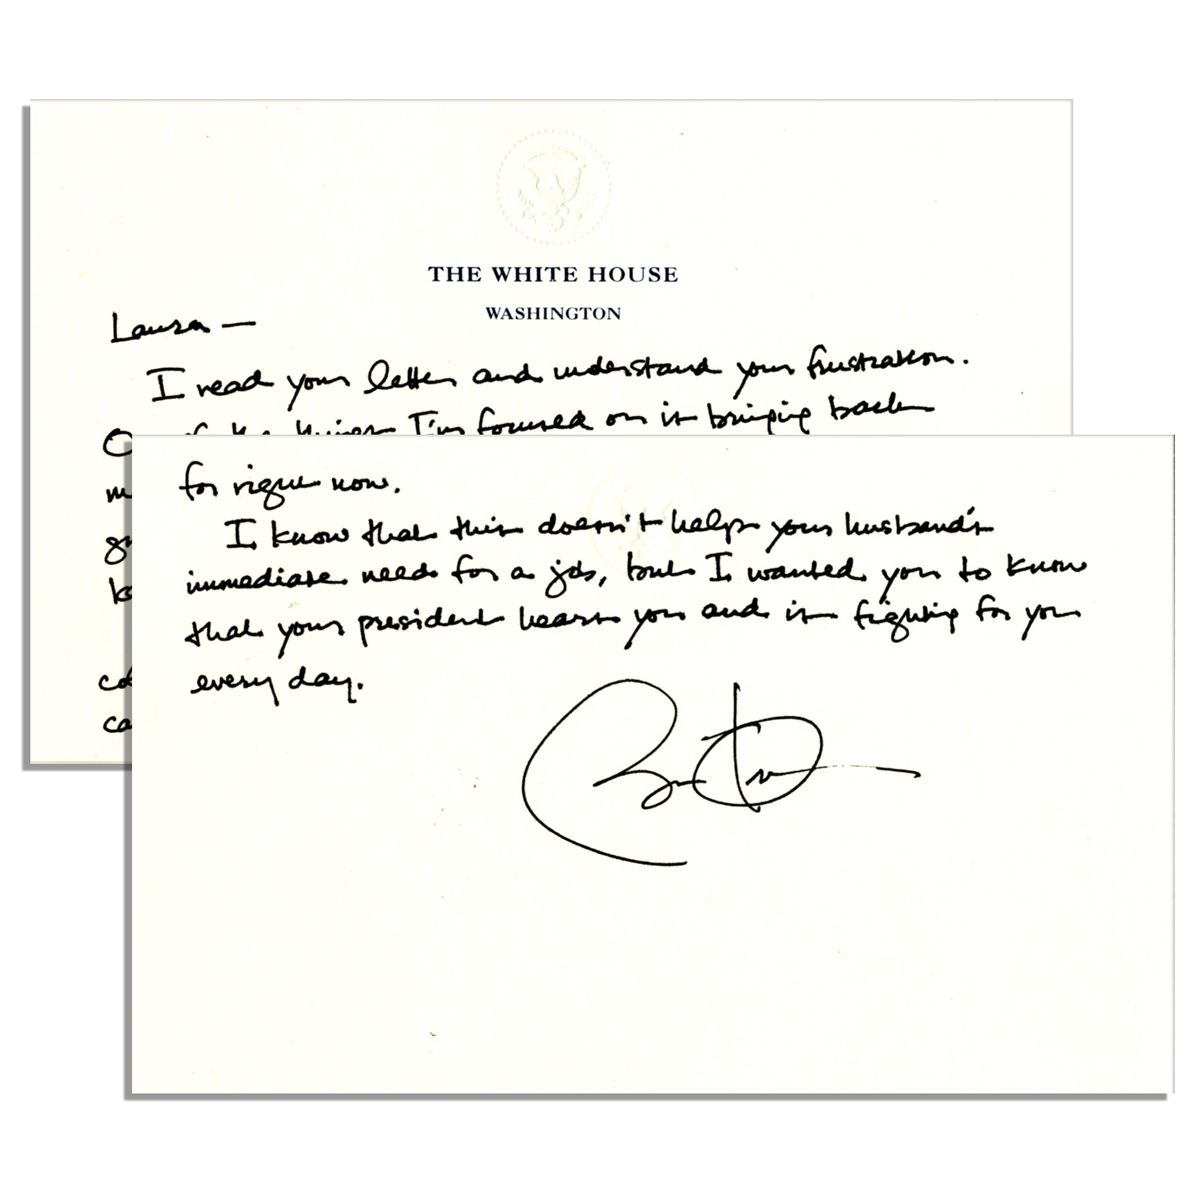 THE WHITE HOUSE
WASHINGTON
Laura —
I read your letter and understand your frustration.
of the things I'm focused on is bringing back
for right now.
I know that this doesn't help your husband's
immediate need for a job, but I wanted you to know
that your president hears you and is fighting for you
every day.